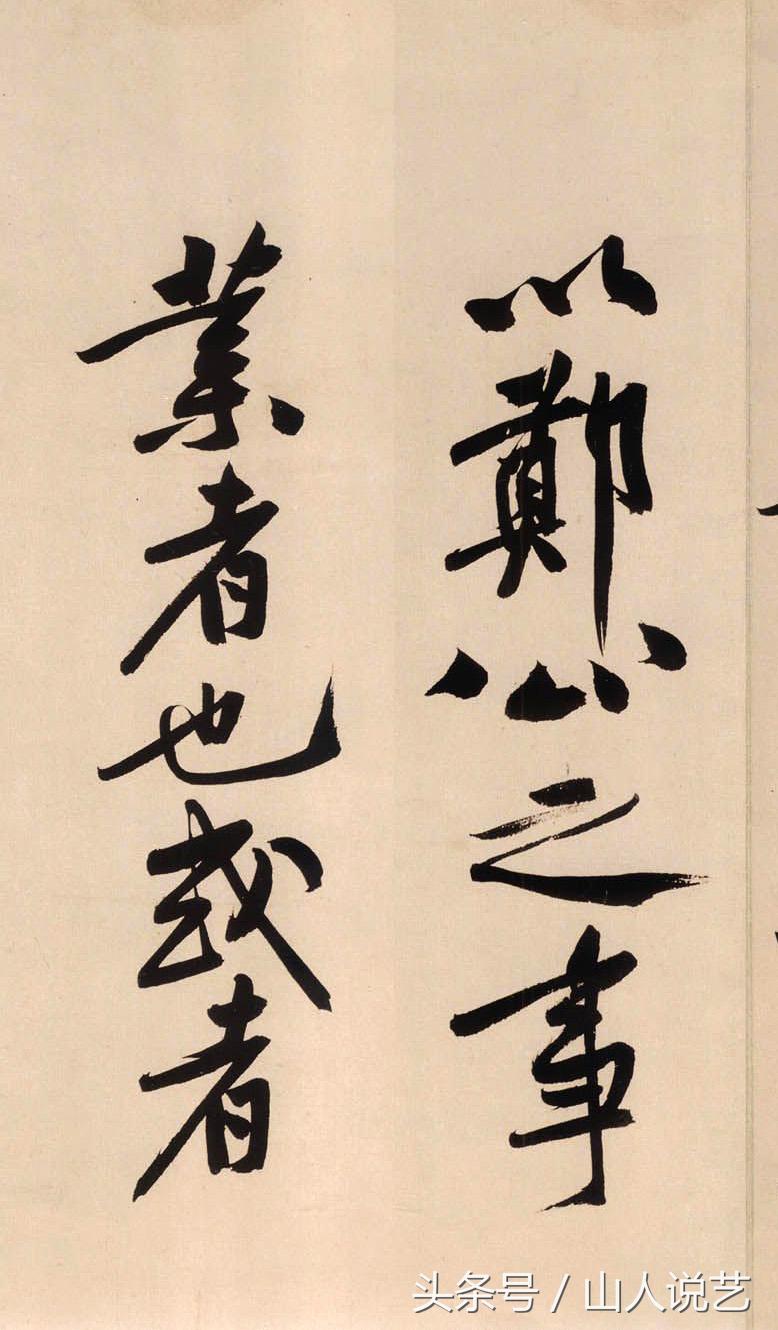 以鄭公之事
業者也或者
头条号 / 山人说艺